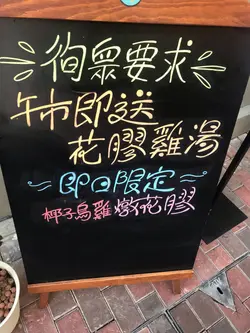 徇眾要求
午市即送
花膠雞湯
即日限定
椰子烏雞燉花膠